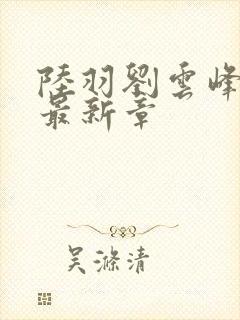 陸羽劉雲峰
最新章
吴滌清